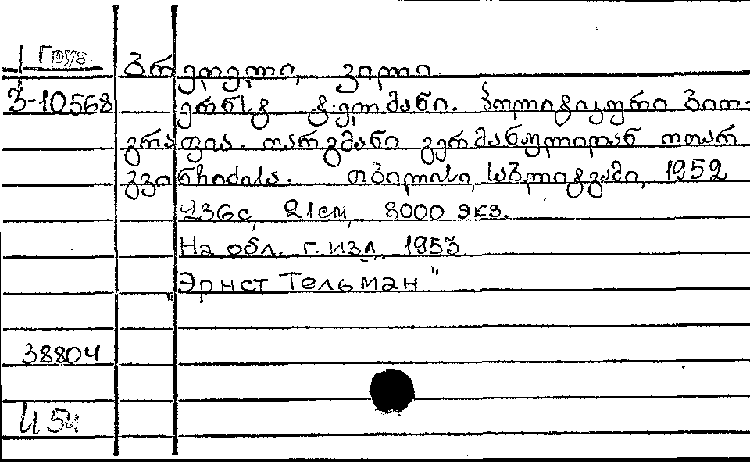 Груз
ბრედელი, ვილი
3-10568 ერნსტ ტელმანი. პოლიტიკური ბიო-
გრაფია. თარგმანი გერმანულიდან ოთარ
გვინჩიძისა. თბილისი, საბლიტგამი, 1952
236с, 21см, 8000 экз.
На обл. г. изд. 1953
"Эрнст Тельман"
38804
И 54